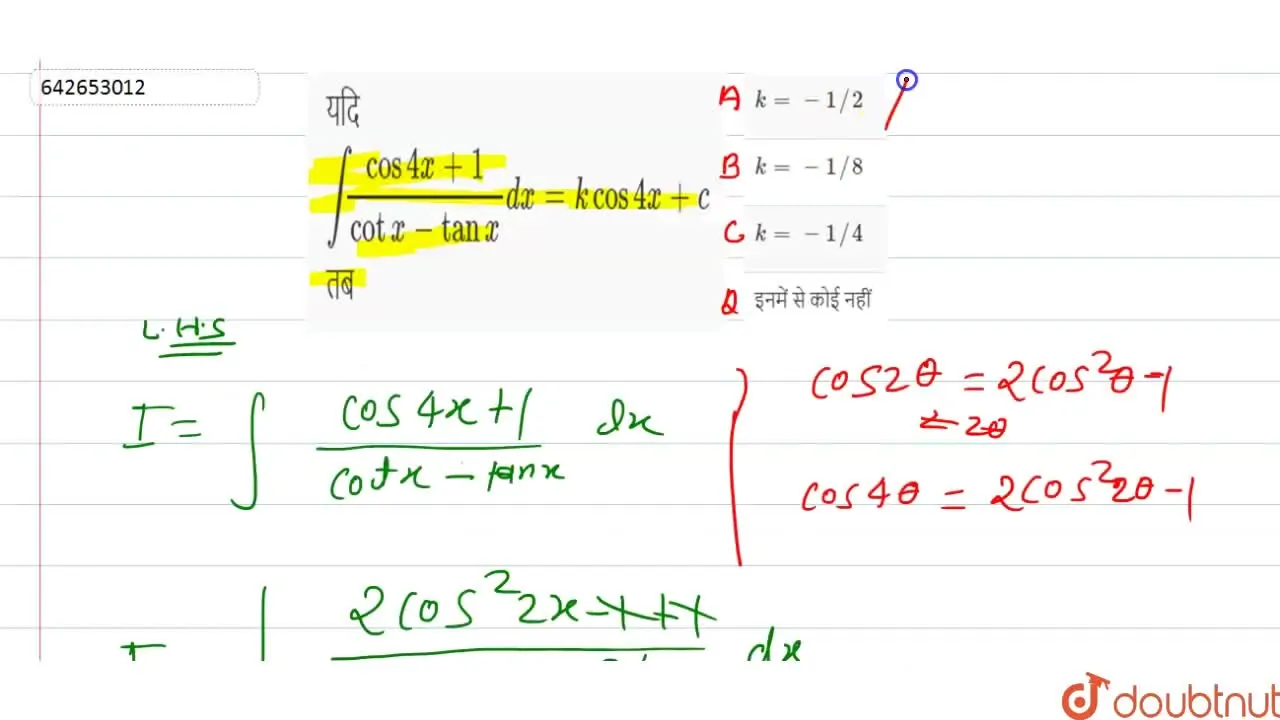 642653012
यदि
∫ cos 4x + 1 / cot x − tan x dx = k cos 4x + c
तब
A k = − 1/2
B k = − 1/8
C k = − 1/4
D इनमें से कोई नहीं
L.H.S
I = ∫ cos 4x + 1 / cot x − tan x dx
cos 2θ = 2 cos²θ − 1
cos 4θ = 2 cos² 2θ − 1
2 cos² 2x − 1 + 1
dx
doubtnut